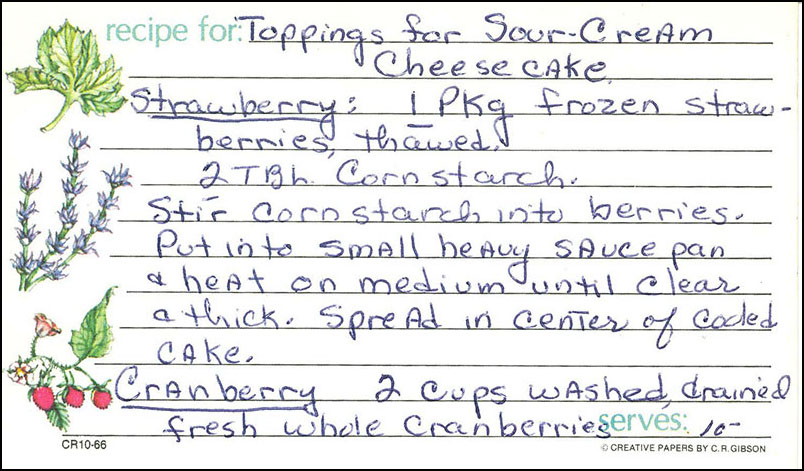 recipe for: Toppings for Sour-Cream
Cheese cake.
Strawberry: 1 Pkg frozen straw-
berries, thawed.
2 TBL. Cornstarch.
Stir cornstarch into berries.
Put into small heavy sauce pan
& heat on medium until clear
& thick. Spread in center of cooled
cake.
Cranberry 2 cups washed, drained
fresh whole cranberries serves: 10-
CR10-66 © CREATIVE PAPERS BY C.R. GIBSON